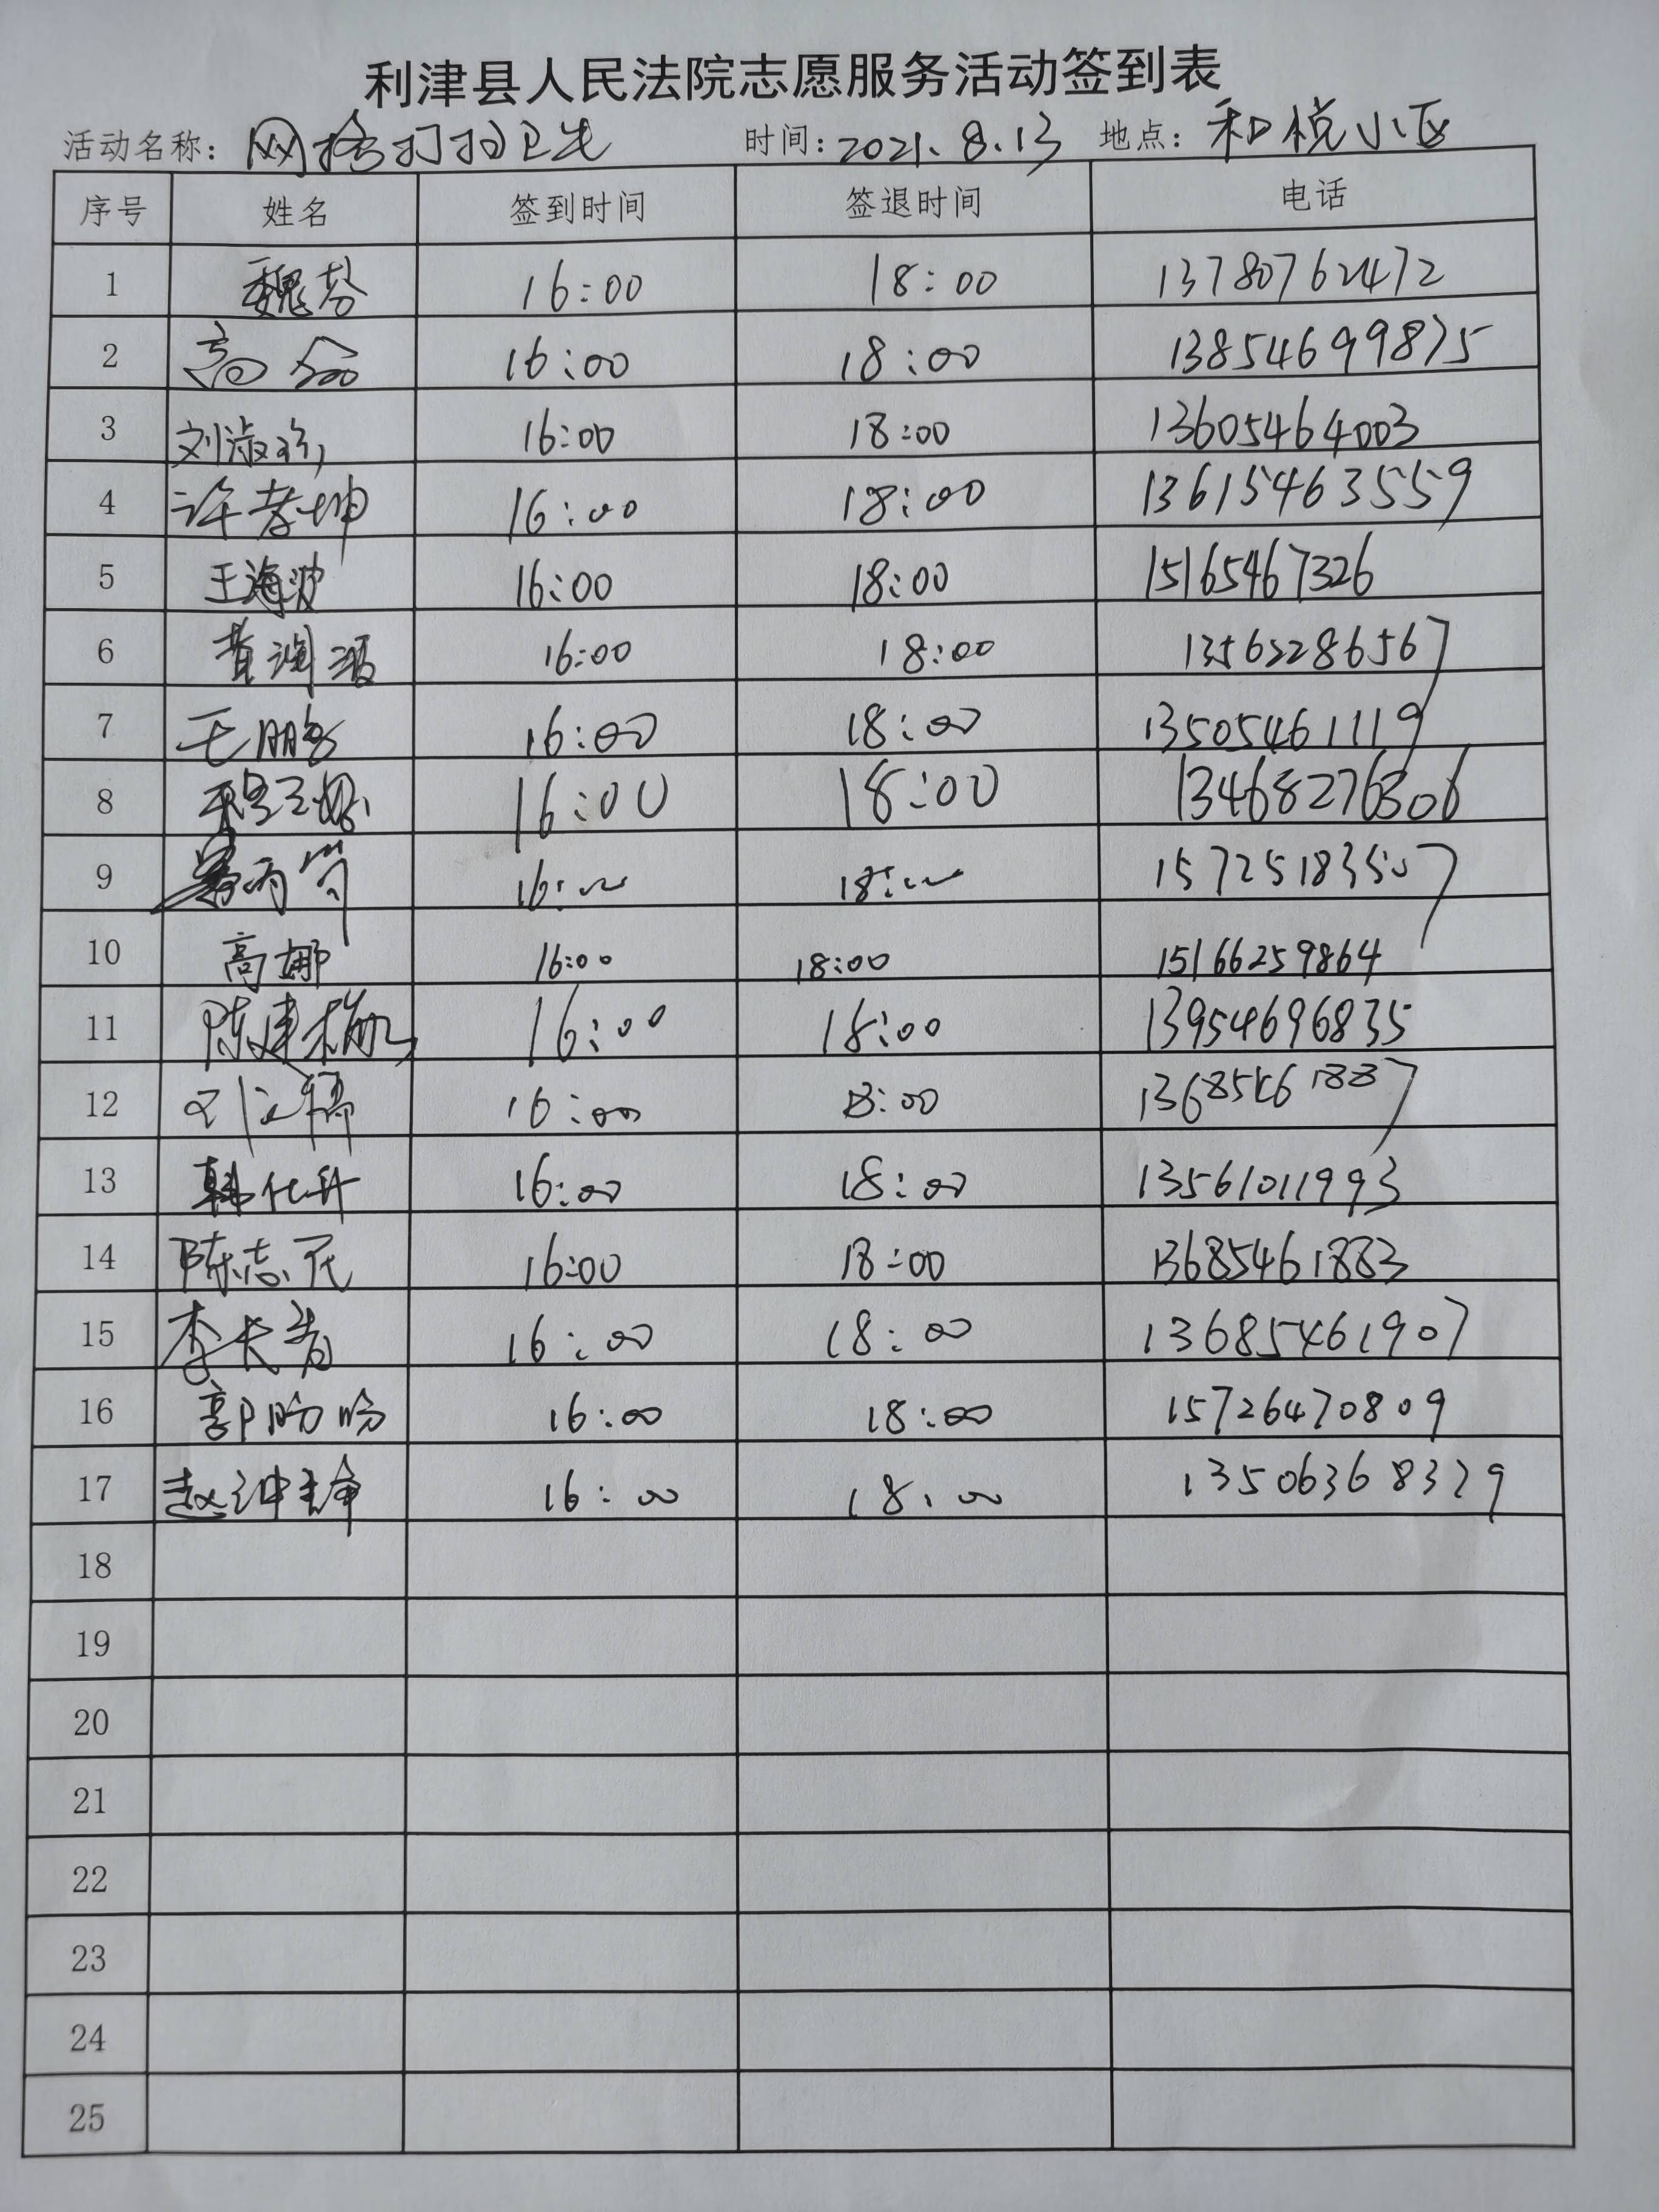 利津县人民法院志愿服务活动签到表
活动名称: 网格打扫卫生 时间: 2021.8.13 地点: 和悦小区
序号 姓名 签到时间 签退时间 电话
1 魏芬 16:00 18:00 13780762472
2 高 16:00 18:00 13854699875
3 刘淑珍 16:00 18:00 13605464003
4 许孝坤 16:00 18:00 13615463559
5 王海波 16:00 18:00 15165467326
6 黄润滋 16:00 18:00 13562286567
7 王鹏 16:00 18:00 13505461119
8 16:00 18:00 13468276306
9 16:00 18:00 15725183507
10 高娜 16:00 18:00 15166259864
11 陈建梅 16:00 18:00 13954696835
12 刘 16:00 18:00 13685461887
13 韩化升 16:00 18:00 13561011993
14 陈志民 16:00 18:00 13685461883
15 李长青 16:00 18:00 13685461907
16 郭盼盼 16:00 18:00 15726470809
17 赵 16:00 18:00 13506368379
18
19
20
21
22
23
24
25